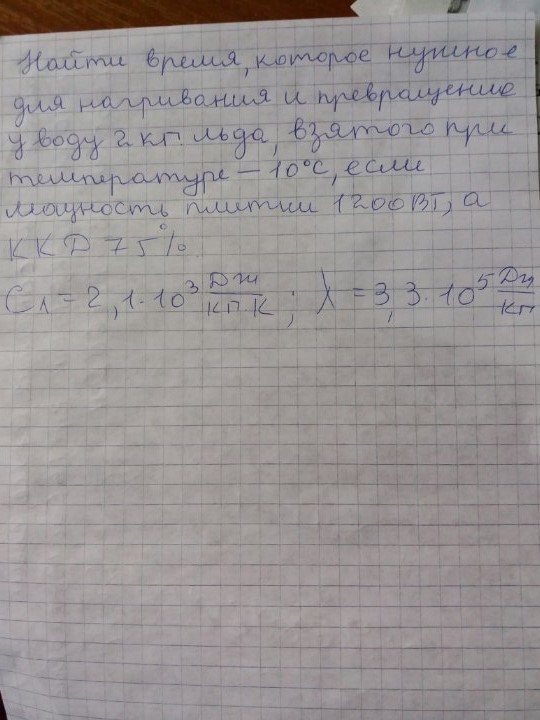 Найти время, которое нужное
для нагривания и превращение
у воду 2 кг. льда, взятого при
температуре – 10°С, если
мощность плитки 1200Вт, а
ККД 75%.
Cл = 2,1·10³ Дж/кг К ; λ = 3,3·10⁵ Дж/кг